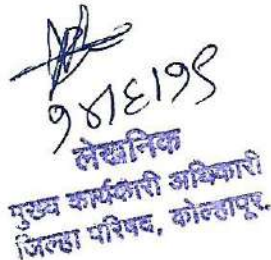 १४/६/१९
लेखनिक
मुख्य कार्यकारी अधिकारी
जिल्हा परिषद, कोल्हापूर.